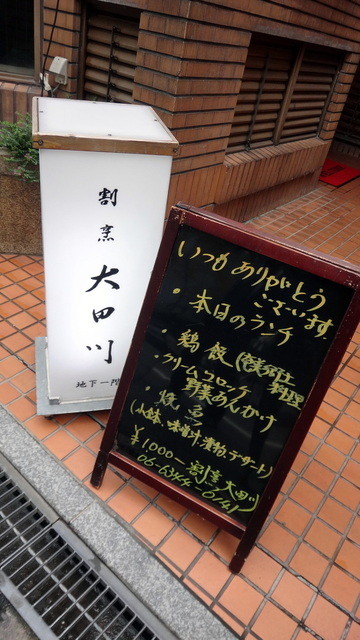 割烹
大田川
地下一階
いつもありがとう
ございます
・本日のランチ
・鶏飯(奄美郷土
料理)
・クリームコロッケ
野菜あんかけ
・焼魚
(小鉢、味噌汁、漬物、デザート)
¥1000― 割烹 大田川